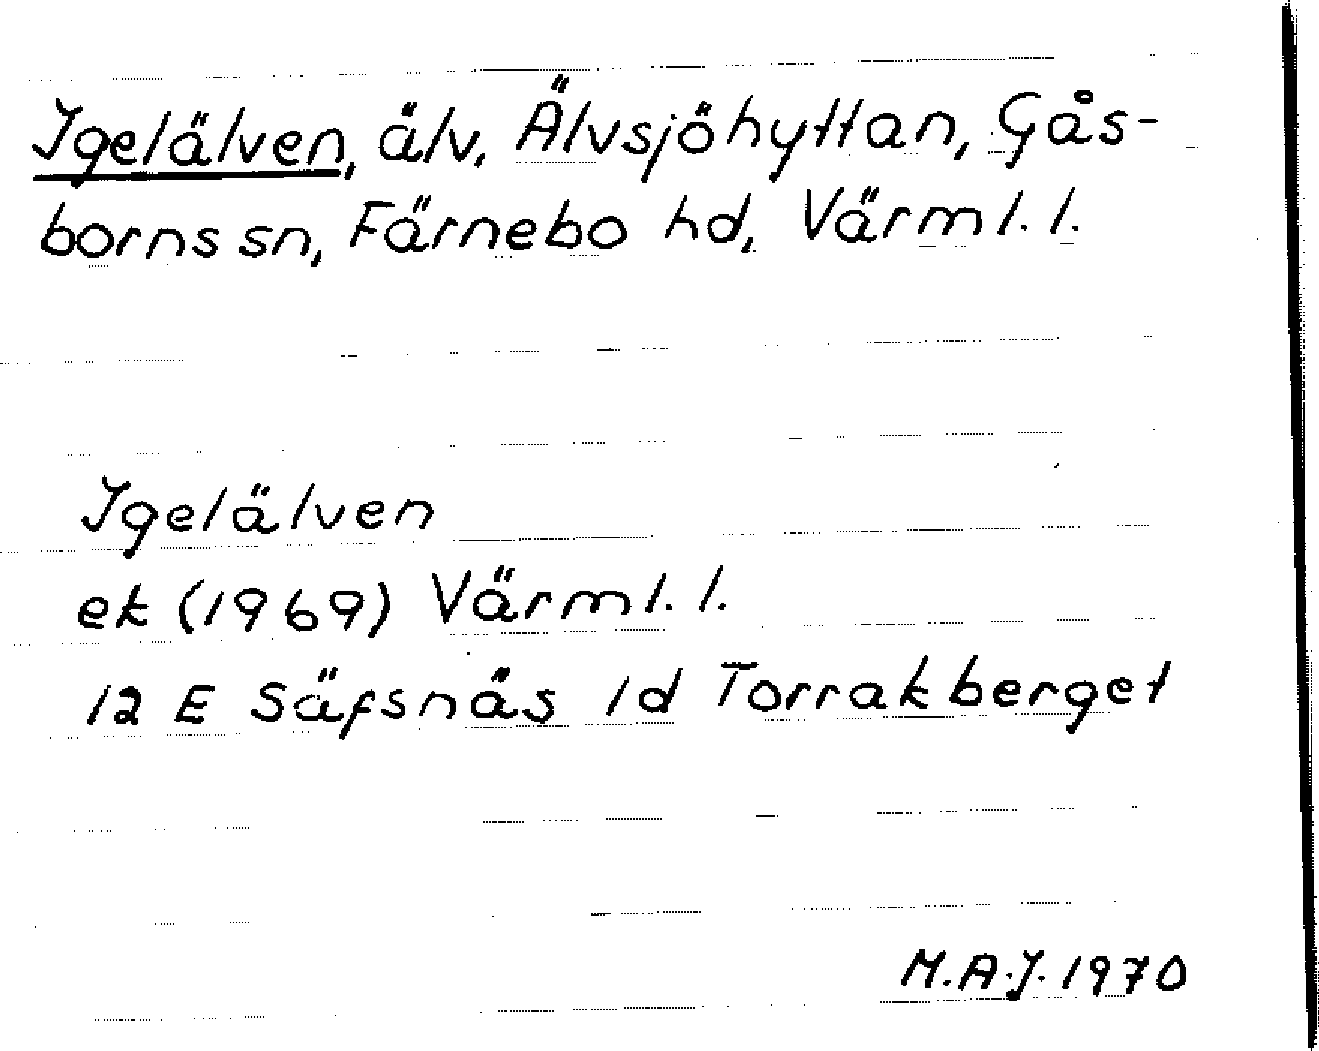 Igelälven, älv, Älvsjöhyttan, Gås-
borns sn, Färnebo hd, Värml. l.
Igelälven
ek (1969) Värml. l.
12 E Säfsnäs 1d Torrakberget
M.A.J. 1970